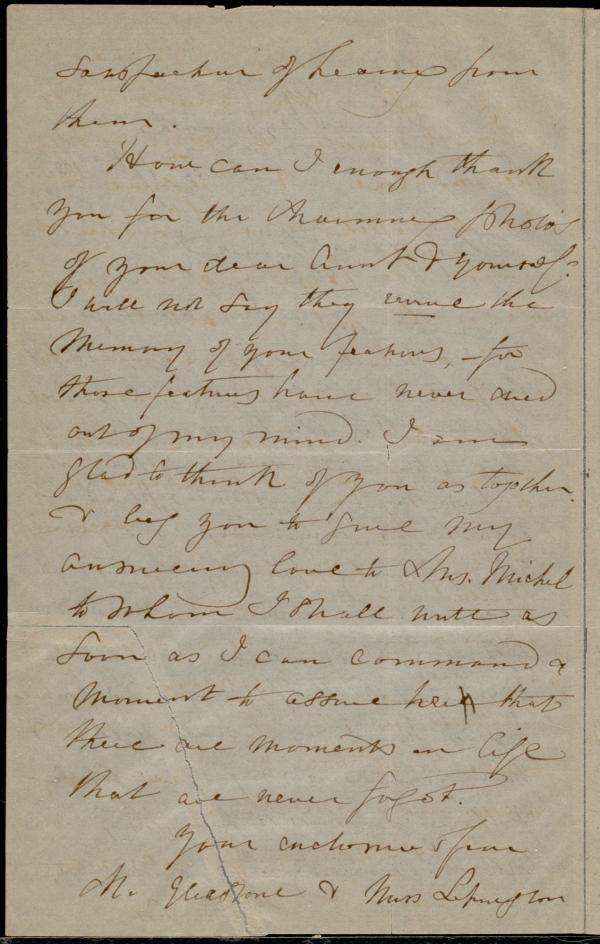 satisfaction of hearing from
them.
How can I enough thank
you for the charming photos
of your dear Aunt & yourself?
I will not say they revive the
Memory of your features, – for
those features have never died
out of my mind. I am
glad to think of you as together.
& beg you to give my
answering love to Mrs. Michel
to whom I shall write as
soon as I can command a
moment to assure her that
there are moments in life
that are never forgot.
Your
Mr. Gladstone & Miss